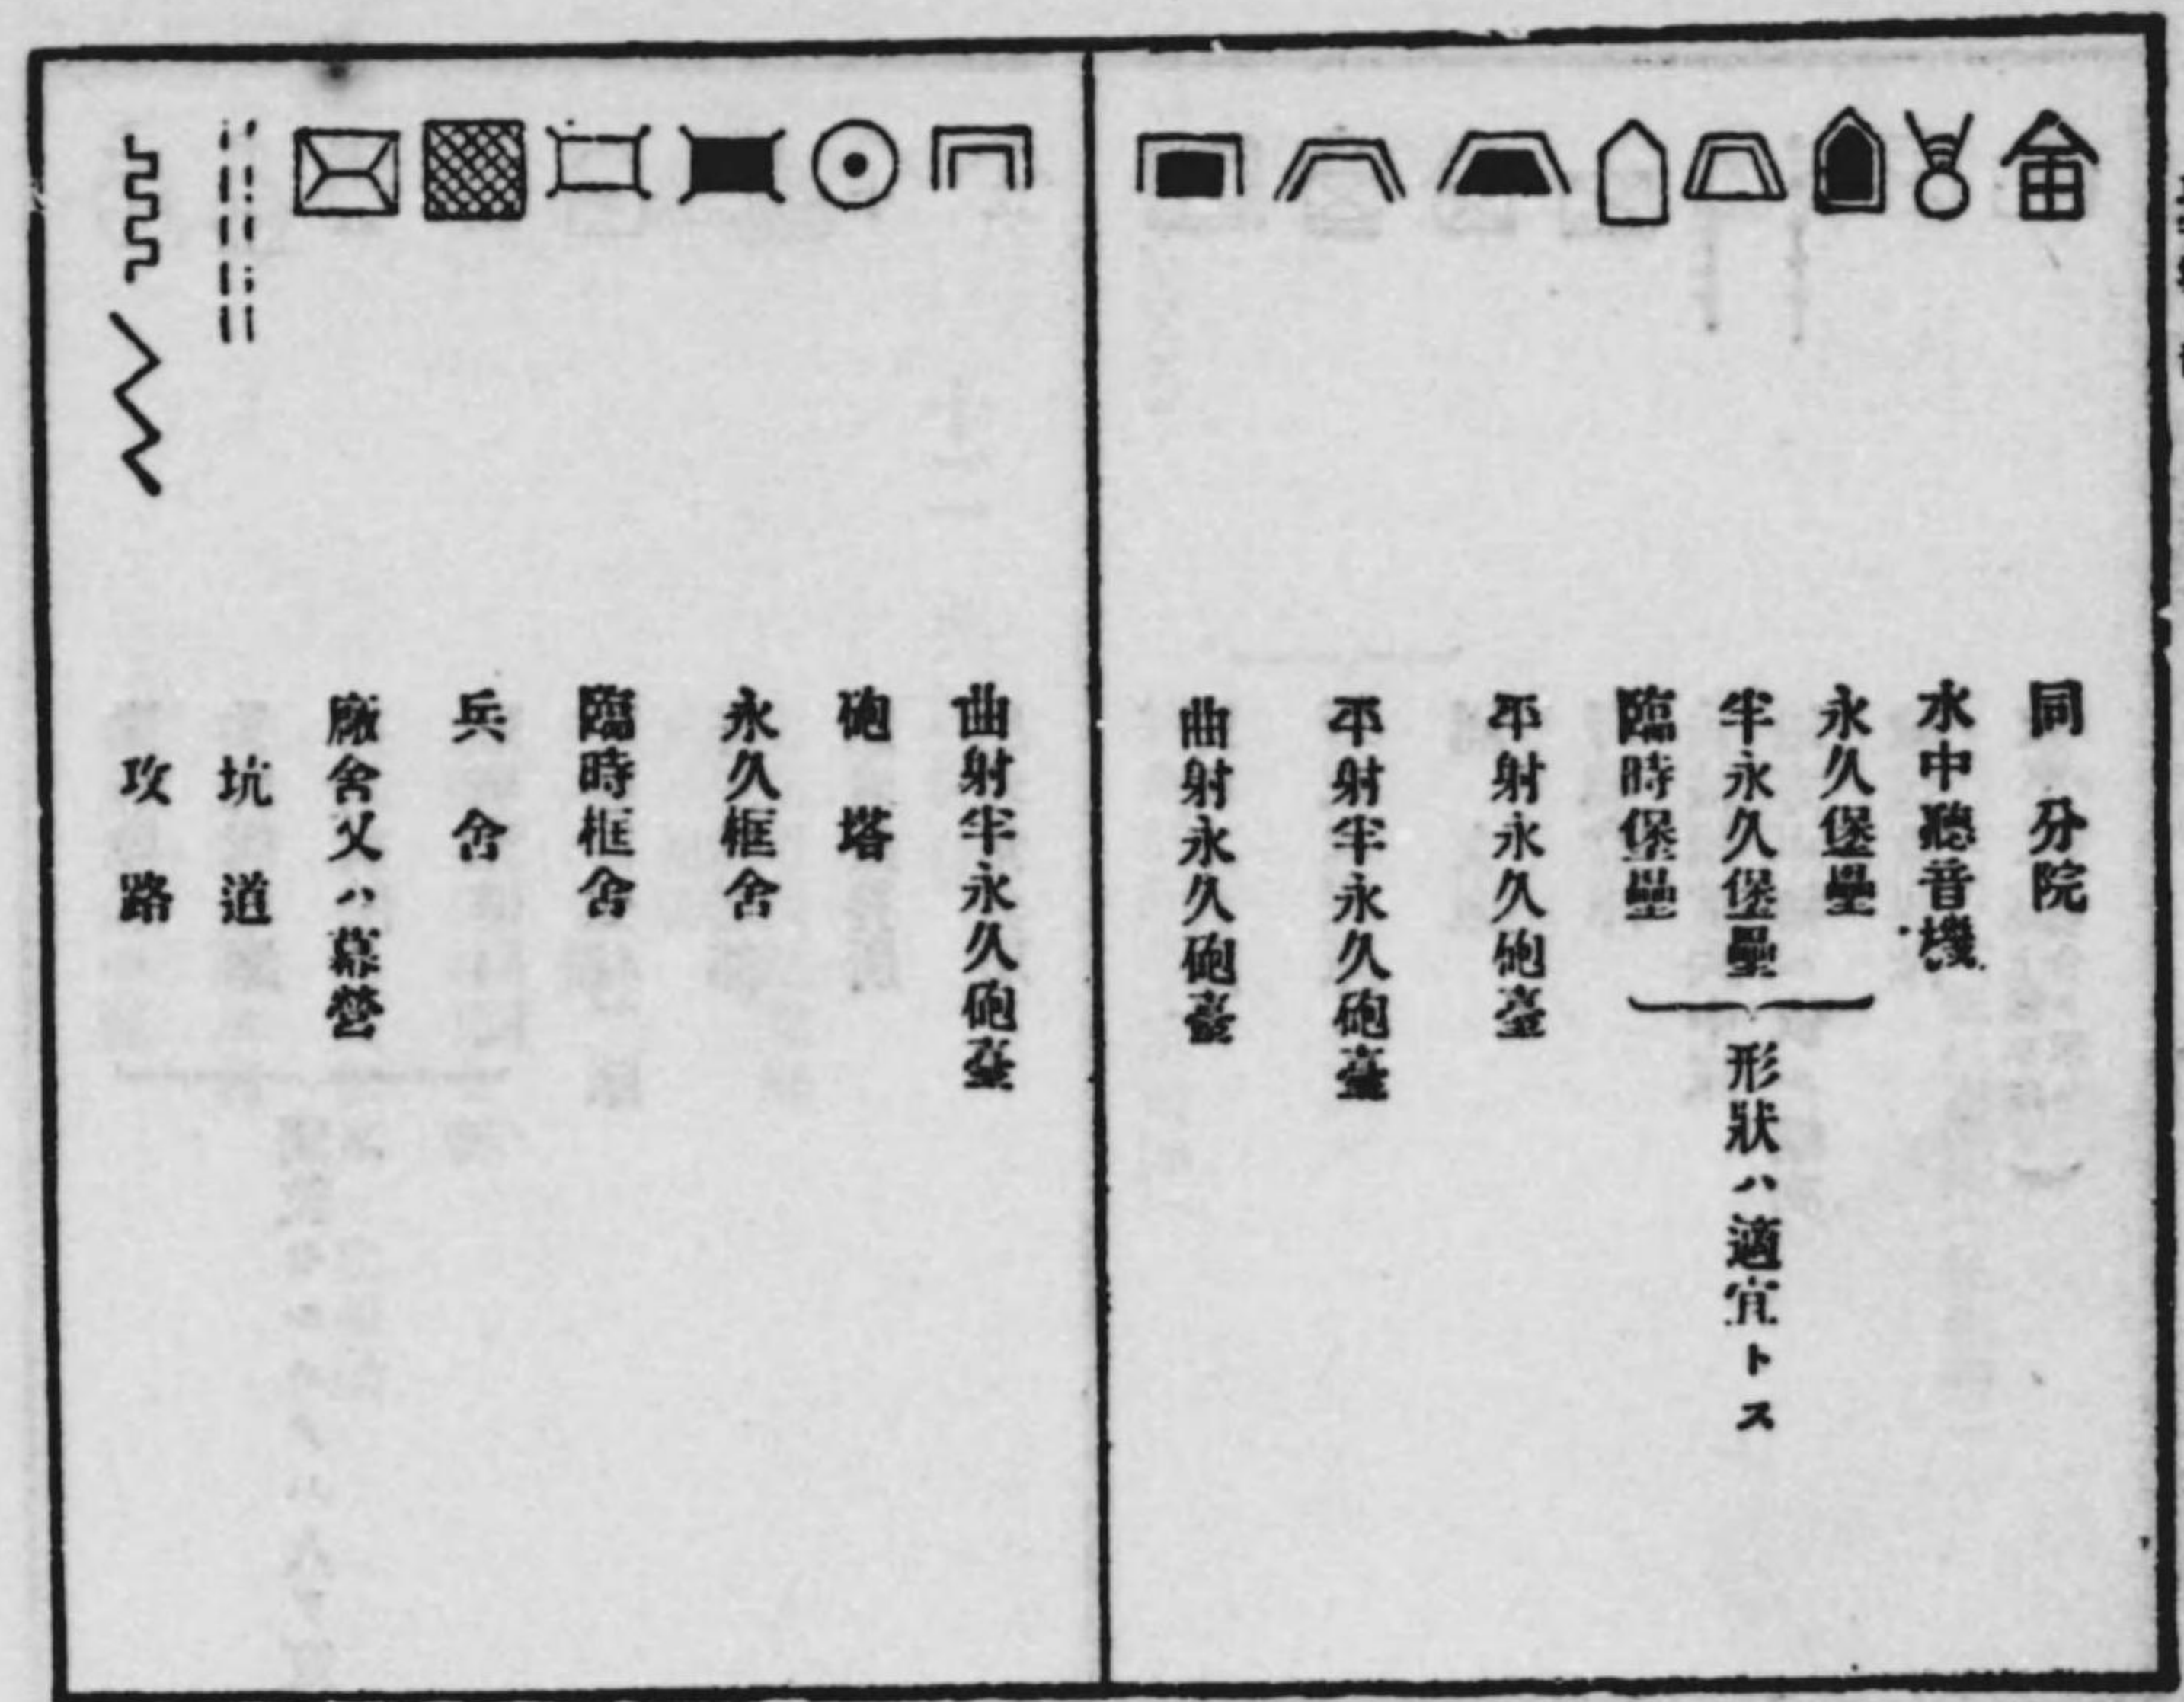 同分院
水中聽音機
永久堡壘
半永久堡壘
臨時堡壘
形狀ハ適宜トス
平射永久砲臺
平射半永久砲臺
曲射永久砲臺
曲射半永久砲臺
砲塔
永久框舍
臨時框舍
兵舍
廠舍又ハ幕營
坑道
攻路